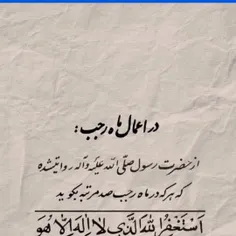 در اعمال ماه رجب :
از حضرت رسول صلّی اللّه علیه و آله روایت شده
که هر که در ماه رجب صد مرتبه بگوید
اَسْتَغْفِرُ اللهَ الَّذی لا اِلهَ اِلاّ هُوَ